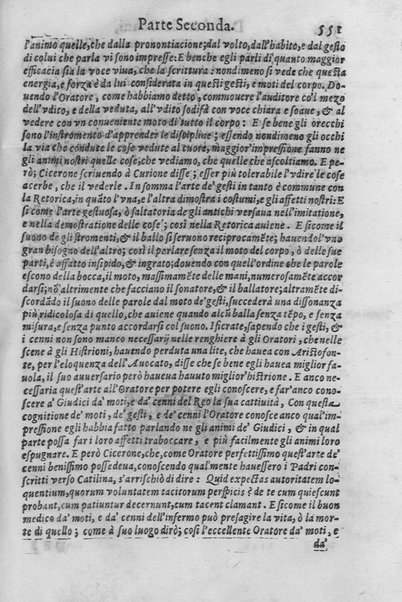 Parte Seconda. 551
l'animo quelle, che dalla prononciatione; dal volto, dall'habito, e dal gesto
di colui che parla vi sono impresse: E benche egli parli di quanto maggior
efficacia sia la voce viua, che la scrittura: nondimeno si vede che questa
energia, e forza è da lui considerata in questi gesti, e moti del corpo. Do-
uendo l'Oratore, come habbiamo detto, commouere l'auditore col mezo
dell'vdito, e della veduta, all'vdito sodisfà con voce chiara e soaue, &
vedere con vn conueniente moto di tutto il corpo: E se bene gli orecchi
sono l'instromento d'apprender le discipline; essendo nondimeno gli occhi
la via che conduce le cose vedute al cuore, maggior impressione fanno ne
gli animi nostri quelle cose, che vediamo, che quelle che ascoltiamo. E pe-
rò; Cicerone scriuendo à Curione disse; esser più tolerabile l'vdire le cose
acerbe, che il vederle. In somma l'arte de' gesti in tanto è commune con
la Retorica, in quãto l'vna, e l'altra dimostra i costumi, e gli affetti nostri: E
si come l'arte gestuosa, ò saltatoria degli antichi versaua nell'imitatione,
e nella demostratione delle cose; così nella Retorica auiene. E si come il
suono de gli stromenti, & il ballo si seruono reciprocamẽte; hauendo l'vno
gran bisogno dell'altro; così il parlare senza il moto del corpo, ò delle sue
parti, è affatto insipido, & ingrato; douendo con quell'ordine che le parole
escono della bocca, il moto, massimamẽte delle mani, numerosamẽte accor
darsi; nõ altrimente che facciano il sonatore, & il ballatore; altramẽte di-
scordãdo il suono delle parole dal moto de' gesti, succederà vna dissonanza
più ridicolosa di quello, che auiene quando alcũ balla senza tẽpo, e senza
misura, e senza punto accordarsi col suono. Ificrate, sapendo che i gesti, &
i cenni non sono manco necessarij nelle renghiere à gli Oratori, che nelle
scene à gli Histrioni, hauendo perduta vna lite, che hauea con Aristofon-
te, per l'eloquenza dell'Auocato, disse che se bene egli hauea miglior fa-
uola, il suo auuersario però hauea hauuto miglior histrione. E anco ne-
cessaria quest'arte all'Oratore per potere egli conoscere, e far'anco cono-
scere a' Giudici da' moti, e da' cenni del Reo la sua cattiuità. Con questa
cognitione de' moti, de' gesti, e de' cenni l'Oratore conosce anco qual'im-
pressione egli habbia fatto parlando ne gli animi de' Giudici, & in qual
parte possa far i loro affetti traboccare, e più facilmente gli animi loro
espugnare. E però Cicerone, che, come Oratore perfettissimo quest'arte de'
cenni benissimo possedeua, conoscendo qual mente hauessero i Padri con-
scritti verso Catilina, s'arrischiò di dire: Quid expectas autoritatem lo-
quentium, quorum voluntatem tacitorum perspicis? de te cum quiescunt
probant, cum patiuntur decernunt, cum tacent clamant. E si come il buon
medico da' moti, e da' cenni dell'infermo può presagire la vita, ò la mor-
te di quello; come à suo luogo dirò; così l'eccellente Oratore da' moti, e
da'